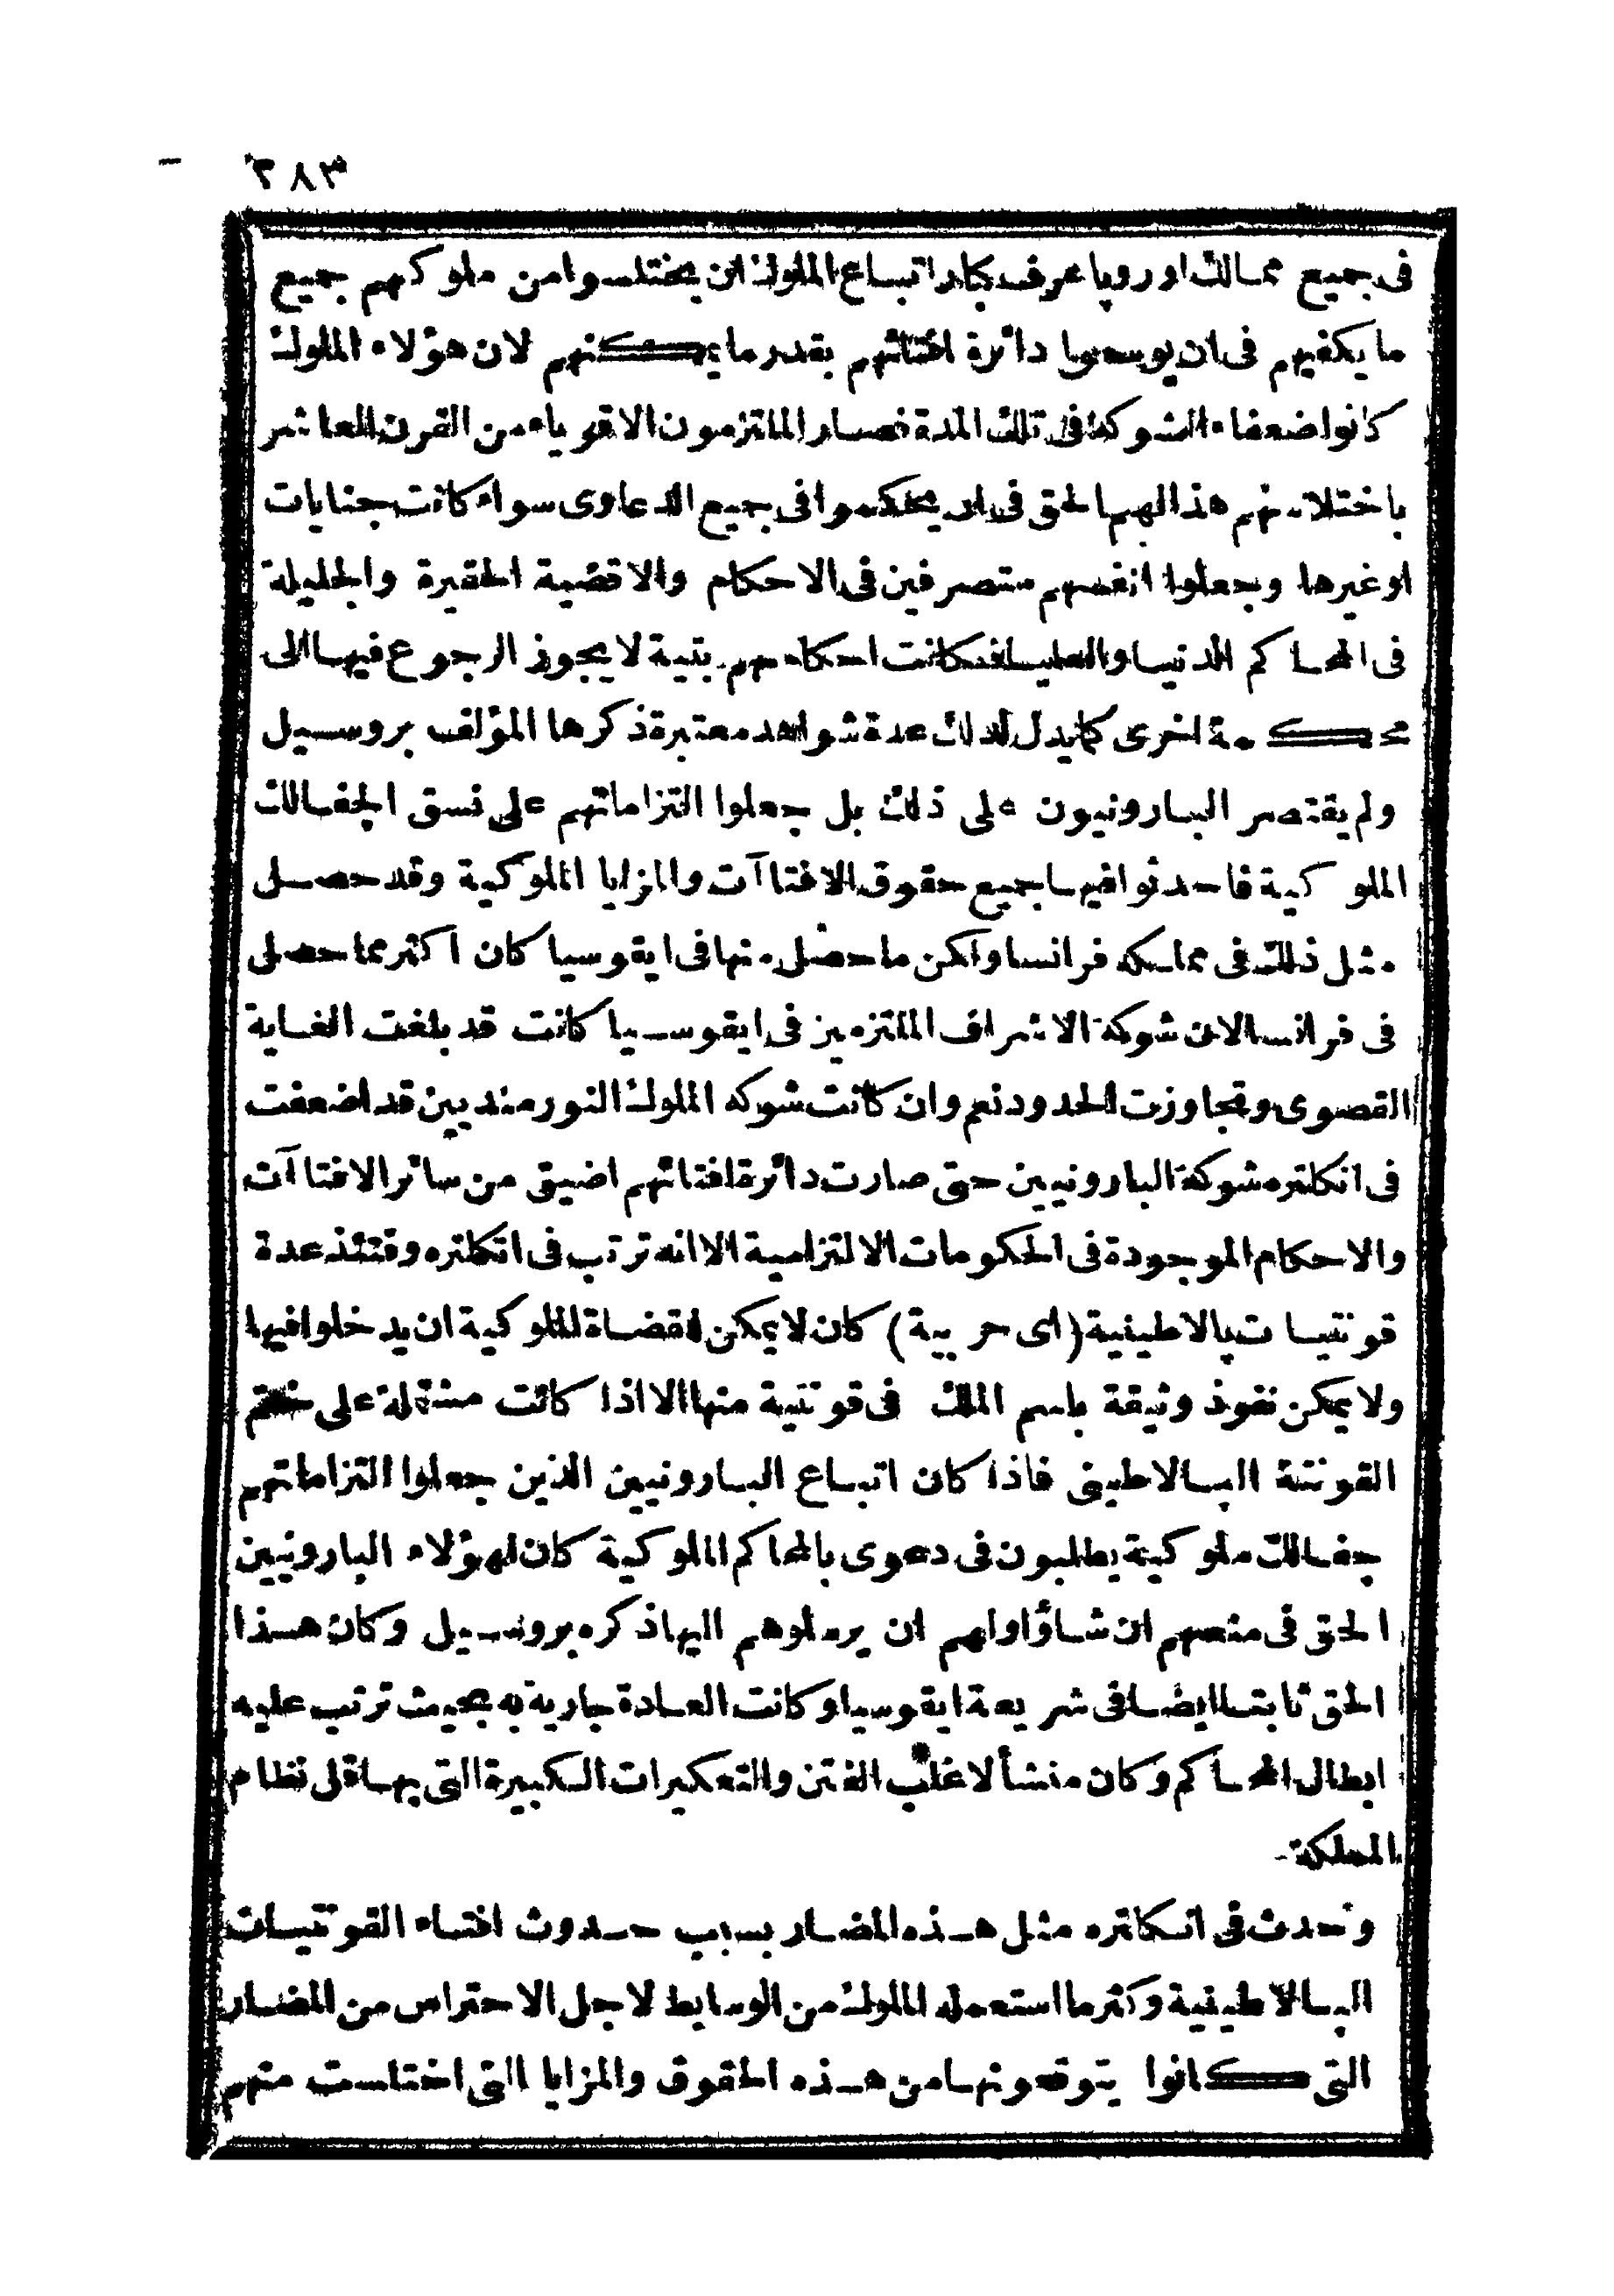 ٣٨٣
فى جميع ممالك اوروپا عرف كبار اتباع الملوك ان يختلسوا من ملوكهم جميع
ما يكفيهم فى ان يوسعوا دائرة افتائهم بقدر ما يمكنهم لان هؤلاء الملوك
كانوا ضعفاء الشوكة فى تلك المدة فصار الملتزمون الاقوياء من القرن العاشر
باختلاسهم هذا لهم الحق فى ان يحكموا فى جميع الدعاوى سواء كانت جنايات
او غيرها وجعلوا انفسهم متصرفين فى الاحكام والاقضية الحقيرة والجليلة
فى المحاكم الدنيا والعليا فكانت احكامهم بتية لا يجوز الرجوع فيها الى
محكمة اخرى كما يدل لذلك عدة شواهد معتبرة ذكرها المؤلف بروسيل
ولم يقتصر البارونيون على ذلك بل جعلوا التزاماتهم على نسق الچفالك
الملوكية فاحدثوا فيها جميع حقوق الافتاآت والمزايا الملوكية وقد حصل
مثل ذلك فى مملكة فرانسا ولكن ما حصل منها فى ايقوسيا كان اكثر مما حصل
فى فرانسا لان شوكة الاشراف الملتزمين فى ايقوسيا كانت قد بلغت الغاية
القصوى وتجاوزت الحدود نعم وان كانت شوكه الملوك النورمنديين قد اضعفت
فى انكلتره شوكة البارونيين حتى صارت دائرة افتائهم اضيق من سائر الافتاآت
والاحكام الموجودة فى الحكومات الالتزامية الا انه ترتب فى انكلتره وقتئذ عدة
قونتيات پالاطينية (اى حربية) كان لا يمكن لقضاة الملوكية ان يدخلوا فيها
ولا يمكن نفوذ وثيقة باسم الملك فى قونتية منها الا اذا كانت مشتملة على ختم
القونتة الپالاطينى فاذا كان اتباع البارونيين الذين جعلوا التزاماتهم
چفالك ملوكية يطلبون فى دعوى بالمحاكم الملوكية كان لهؤلاء البارونيين
الحق فى منعهم ان شاؤا ولهم ان يرسلوهم اليها ذكره بروسيل وكان هذا
الحق ثابتا ايضا فى شريعة ايقوسيا وكانت العادة جارية به بحيث ترتب عليه
ابطال المحاكم وكان منشأ لاغلب الفتن والتعكيرات الكبيرة التى بها قل نظام
المملكة
وحدث فى انكلتره مثل هذه المضار بسبب حدوث افتاء القونتيات
الپالاطينية وكثر ما استعمله الملوك من الوسايط لاجل الاحتراس من المضار
التى كانوا يتوقعونها من هذه الحقوق والمزايا التى اختلست منهم